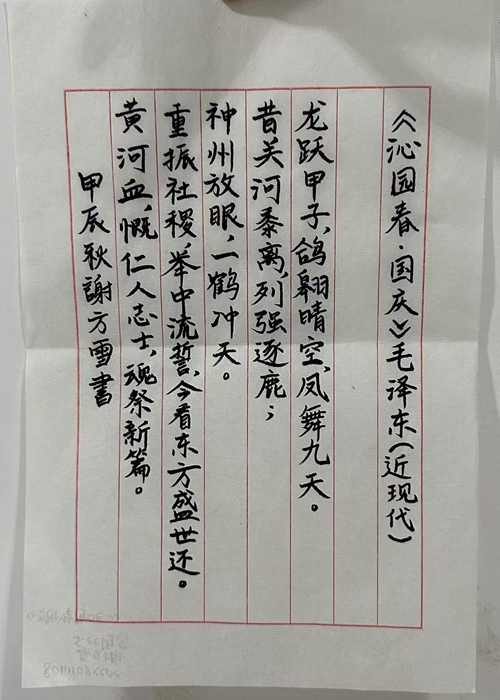 《沁园春·国庆》毛泽东(近现代)
龙跃甲子,鸽翱晴空,凤舞九天。
昔关河黍离,列强逐鹿;
神州放眼,一鹤冲天。
重振社稷,举中流誓,今看东方盛世还。
黄河血,慨仁人志士,魂祭新篇。
甲辰秋謝方雪書